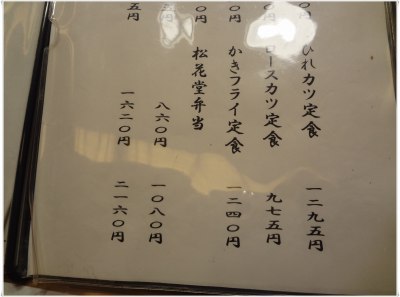 〇円
ひれカツ定食 一二九五円
円
ロースカツ定食 九七五円
円
かきフライ定食 一二四〇円
〇円
松花堂弁当
円
八六〇円 一〇八〇円
五円
一六二〇円 二一六〇円